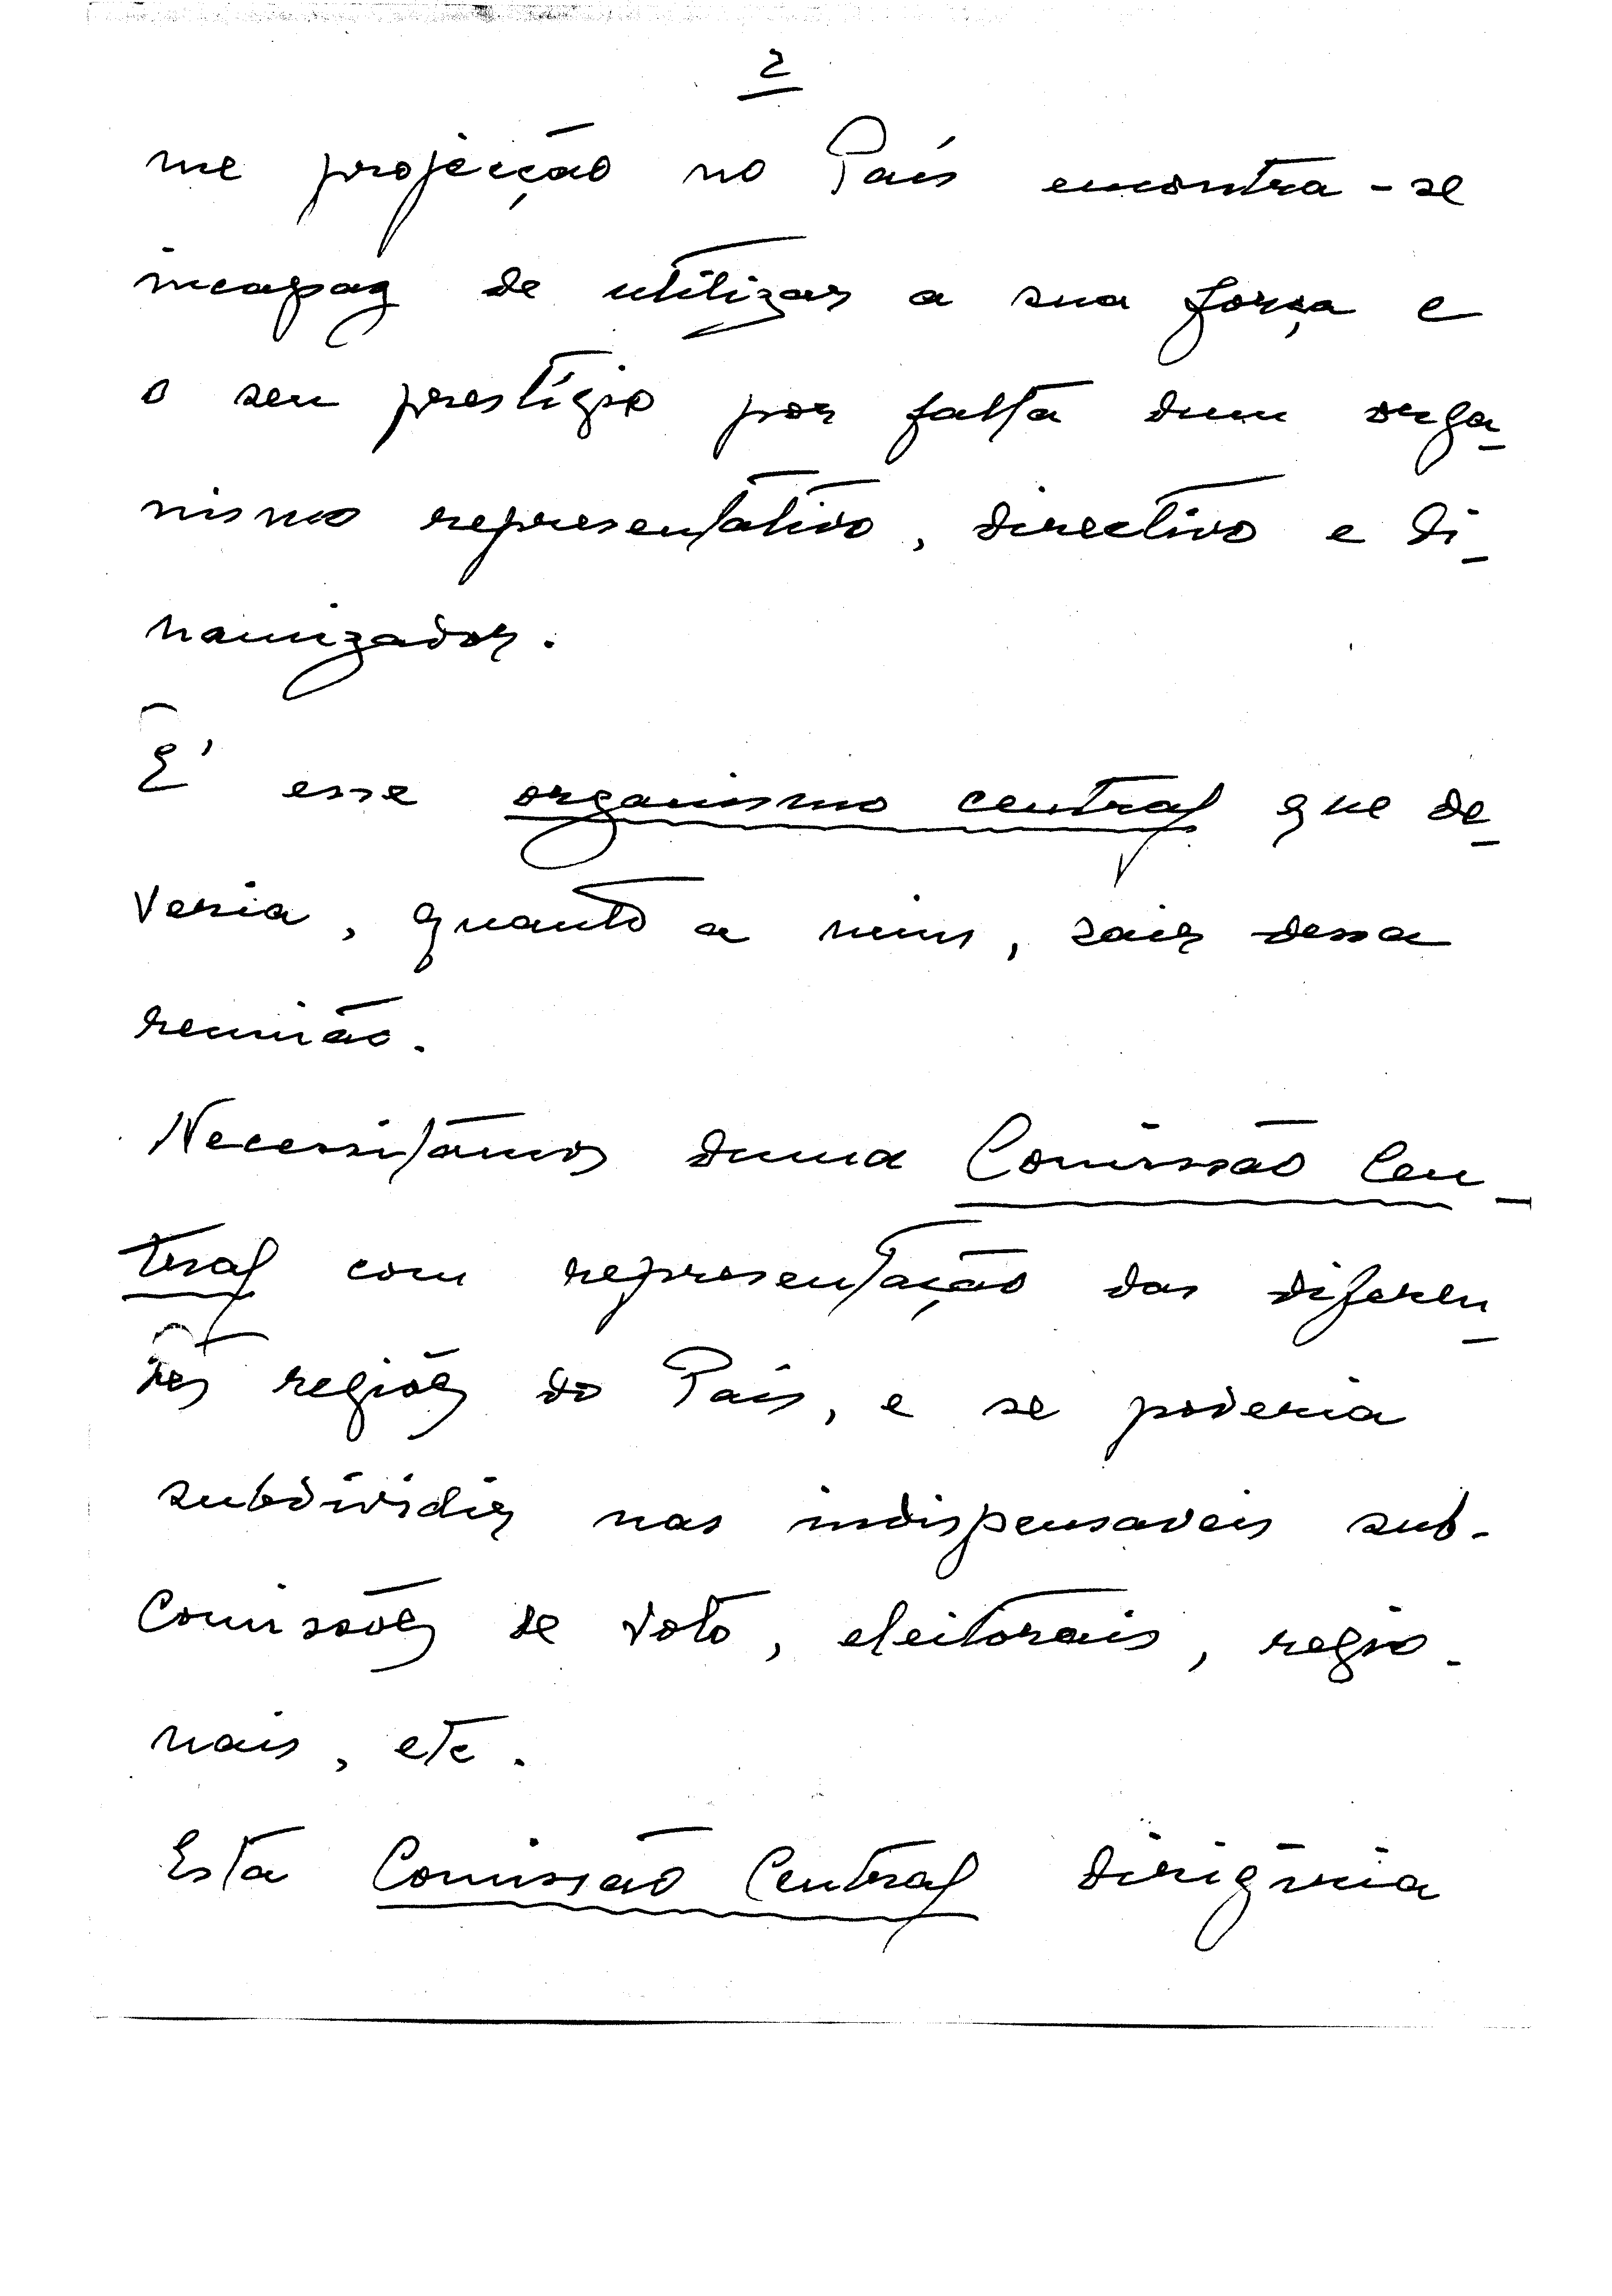 2
me projecção no País encontra-se
incapaz de utilizar a sua força e
o seu prestígio por falta dum orga-
nismo representativo, directivo e di-
namizador.
E' esse organismo central que de-
veria, quanto a mim, sair dessa
reunião.
Necessitâmos duma Comissão Cen-
tral com representação das diferen-
tes regiões do País, e se poderia
subdividir nas indispensaveis sub-
comissões de voto, eleitorais, regio-
nais, etc.
Esta Comissão Central dirigiria